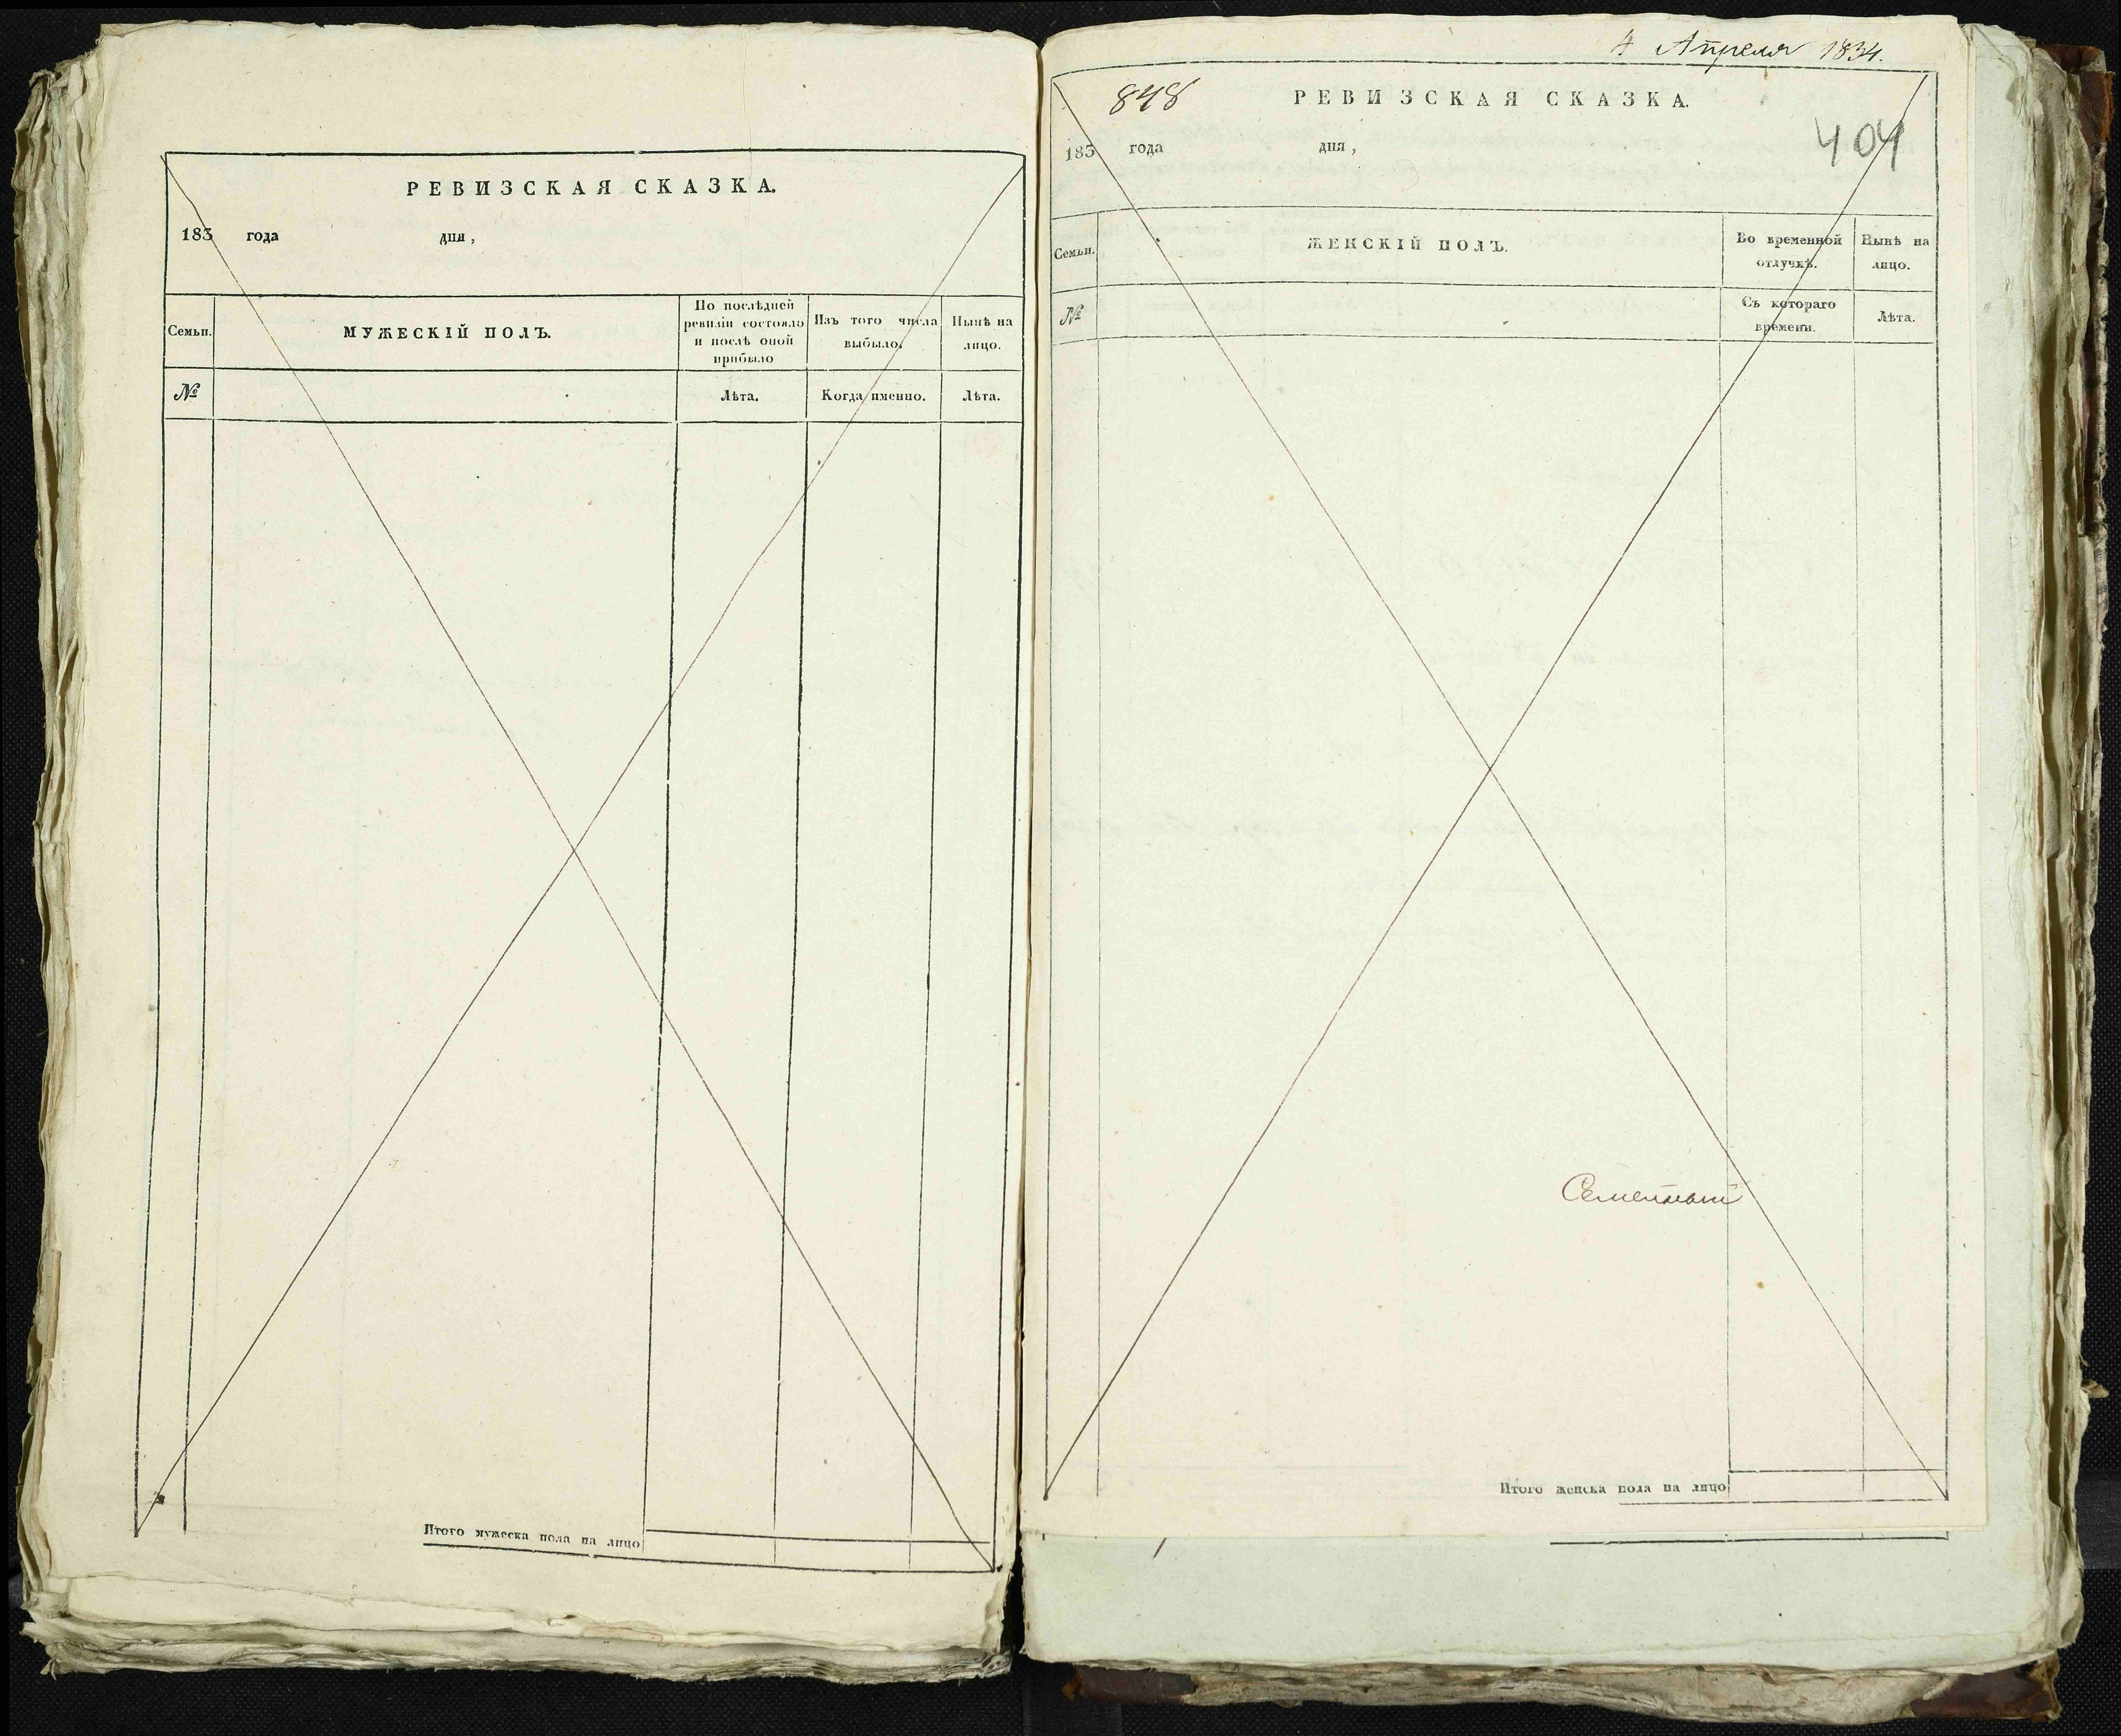 РЕВИЗСКАЯ СКАЗКА.
183 года дня,
Семьи. МУЖЕСКІЙ ПОЛЪ. По послѣдней ревизіи состояло и послѣ оной прибыло Изъ того числа выбыло. Нынѣ на лицо.
№ Лѣта. Когда именно. Лѣта.
Итого мужеска пола на лицо
4 Апреля 1834.
848
РЕВИЗСКАЯ СКАЗКА.
404
183 года дня,
Семьи. ЖЕНСКІЙ ПОЛЪ. Во временной отлучкѣ. Нынѣ на лицо.
№ Съ котораго времени. Лѣта.
Итого женска пола на лицо